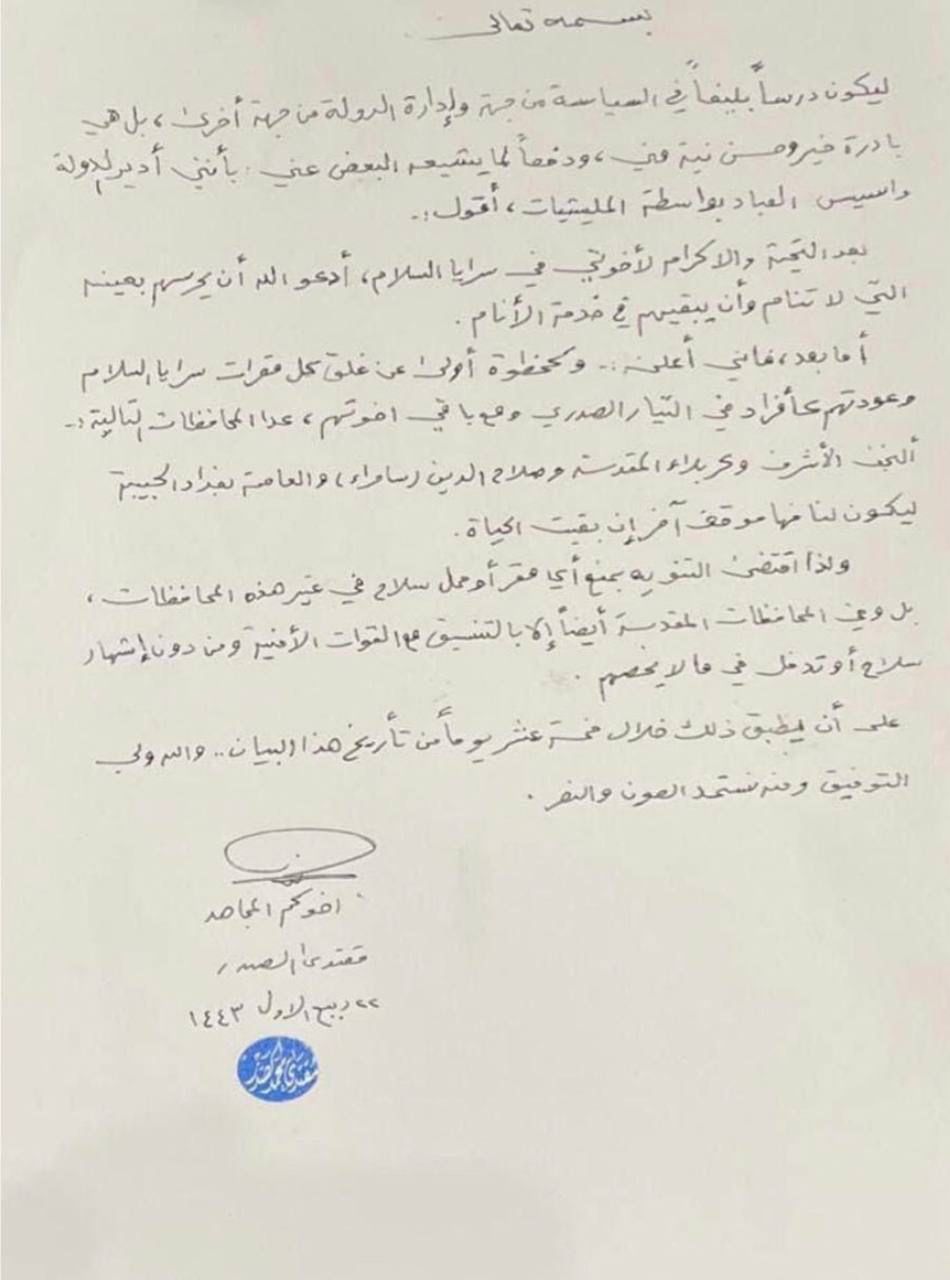 بسمه تعالى
ليكون درساً بليغاً في السياسة من جهة وإدارة الدولة من جهة أخرى ، بل هي
بادرة خير وحسن نية مني ، ودفعاً لما يشيعه البعض عني : بأنني أدير الدولة
واسيس العباد بواسطة المليشيات ، أقول :-
بعد التحية والاكرام لأخوتي في سرايا السلام ، أدعو الله أن يحرسهم بعينه
التي لا تنام وأن يبقيهم في خدمة الأنام .
أما بعد ، فاني أعلن :- وكخطوة أولى عن غلق كل مقرات سرايا السلام
وعودتهم كأفراد في التيار الصدري ومع باقي اخوتهم ، عدا المحافظات التالية :-
النجف الأشرف وكربلاء المقدسة وصلاح الدين (سامراء) والعاصمة بغداد الحبيبة
ليكون لنا فيها موقف آخر إن بقيت الحياة .
ولذا اقتضى التنويه بمنع أي مقر أو حمل سلاح في غير هذه المحافظات ،
بل وفي المحافظات المقدسة أيضاً إلا بالتنسيق مع القوات الأمنية ومن دون إشهار
سلاح أو تدخل في ما لا يخصهم .
على أن يطبق ذلك خلال خمسة عشر يوماً من تأريخ هذا البيان .. والله ولي
التوفيق ومنه نستمد العون والنصر .
اخوكم المجاهد
مقتدى الصدر
٢٢ ربيع الاول ١٤٤٣